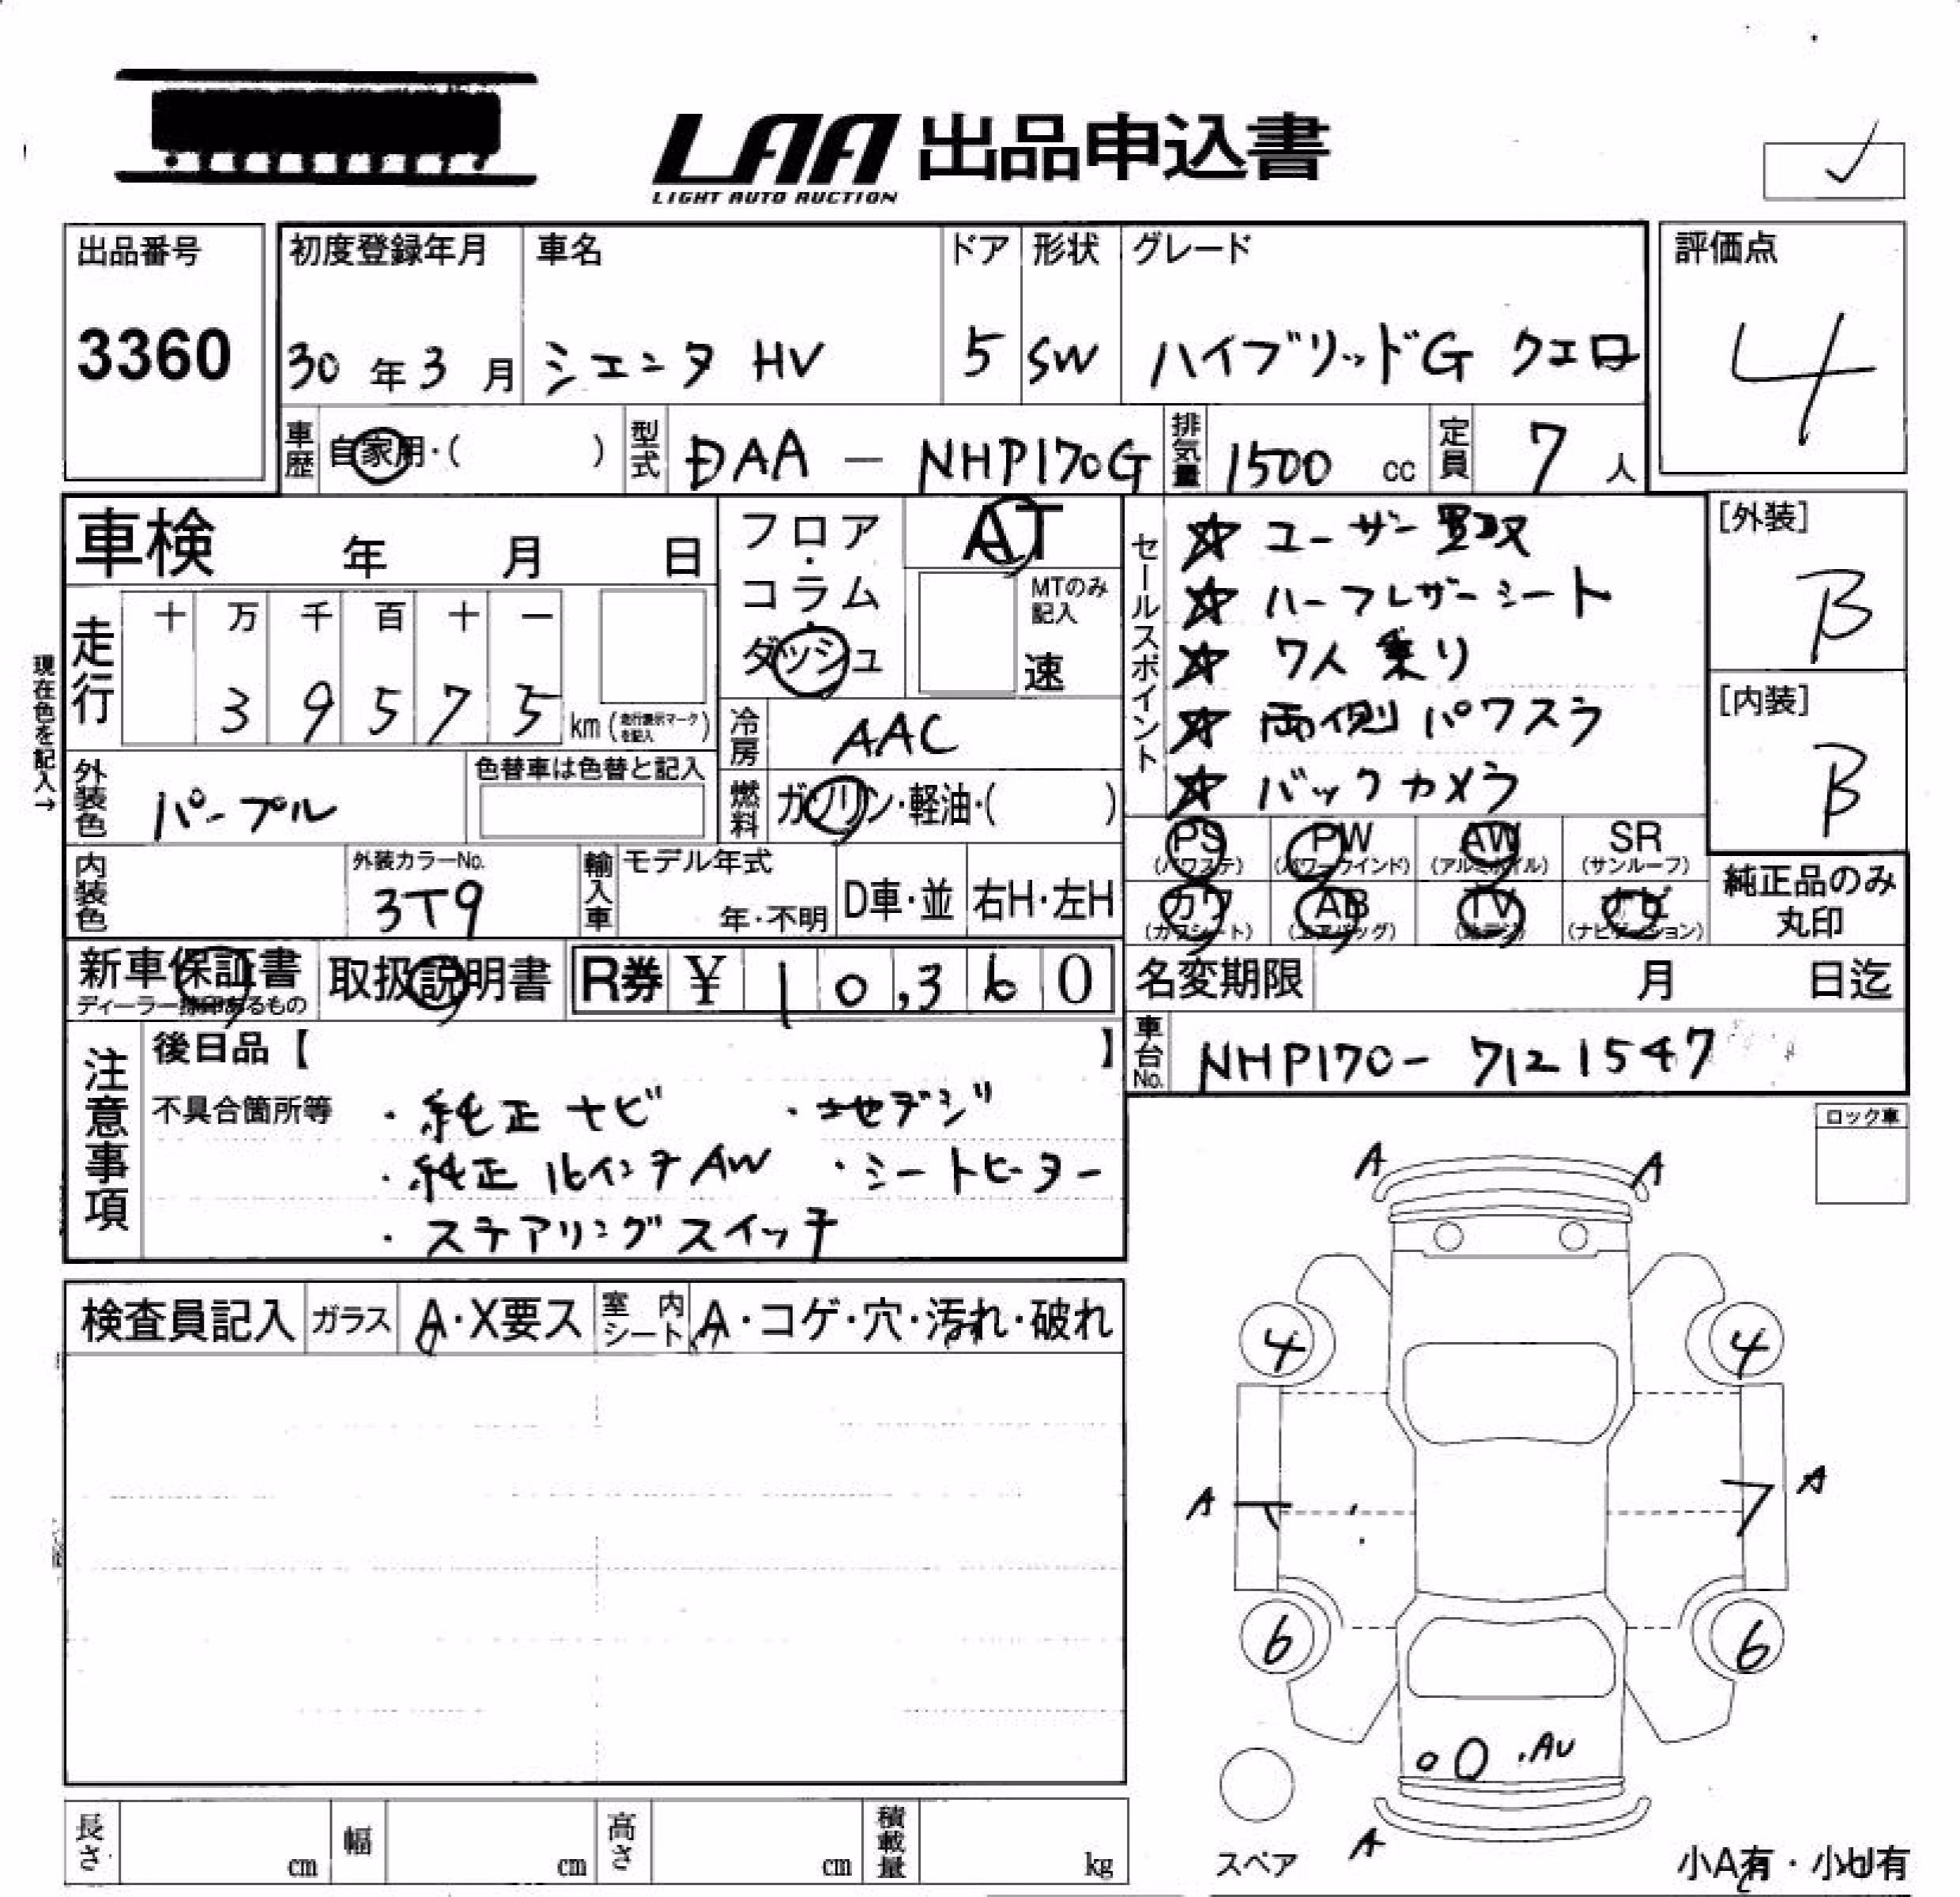 LAA 出品申込書
LIGHT AUTO AUCTION
出品番号 初度登録年月 車名 ドア 形状 グレード 評価点
3360 30年3月 シエンタ HV 5 SW ハイブリッドG クエロ 4
車歴 自家用・( ) 型式 DAA - NHP170G 排気量 1500 cc 定員 7 人
車検 年 月 日
フロア・コラム・ダッシュ
AT
MTのみ記入
速
セールスポイント
☆ ユーザー買取
☆ ハーフレザーシート
☆ 7人乗り
☆ 両側パワスラ
☆ バックカメラ
[外装]
B
[内装]
B
現在色を記入→
走行 十 万 千 百 十 一
3 9 5 7 5 km (走行表示マークを記入)
冷房 AAC
外装色 パープル 色替車は色替と記入
燃料 ガソリン・軽油・( )
PS (パワステ) PW (パワーウインド) AW (アルミホイル) SR (サンルーフ)
カワ (カワシート) AB (エアバッグ) TV (地デジ) ナビ (ナビゲーション)
純正品のみ丸印
内装色 外装カラーNo. 3T9 輸入車 モデル年式 年・不明 D車・並 右H・左H
新車保証書 取扱説明書 R券 ¥ 10,360
ディーラー捺印あるもの
名変期限 月 日迄
車台No. NHP170-7121547
注意事項
後日品【 】
不具合箇所等 ・純正ナビ ・地デジ
・純正16インチAW ・シートヒーター
・ステアリングスイッチ
ロック車
A A
検査員記入 ガラス A・X要ス 室内シート A・コゲ・穴・汚れ・破れ
4 4
A A
6 6
AU
A
スペア
小A有・小U有
長さ cm 幅 cm 高さ cm 積載量 kg